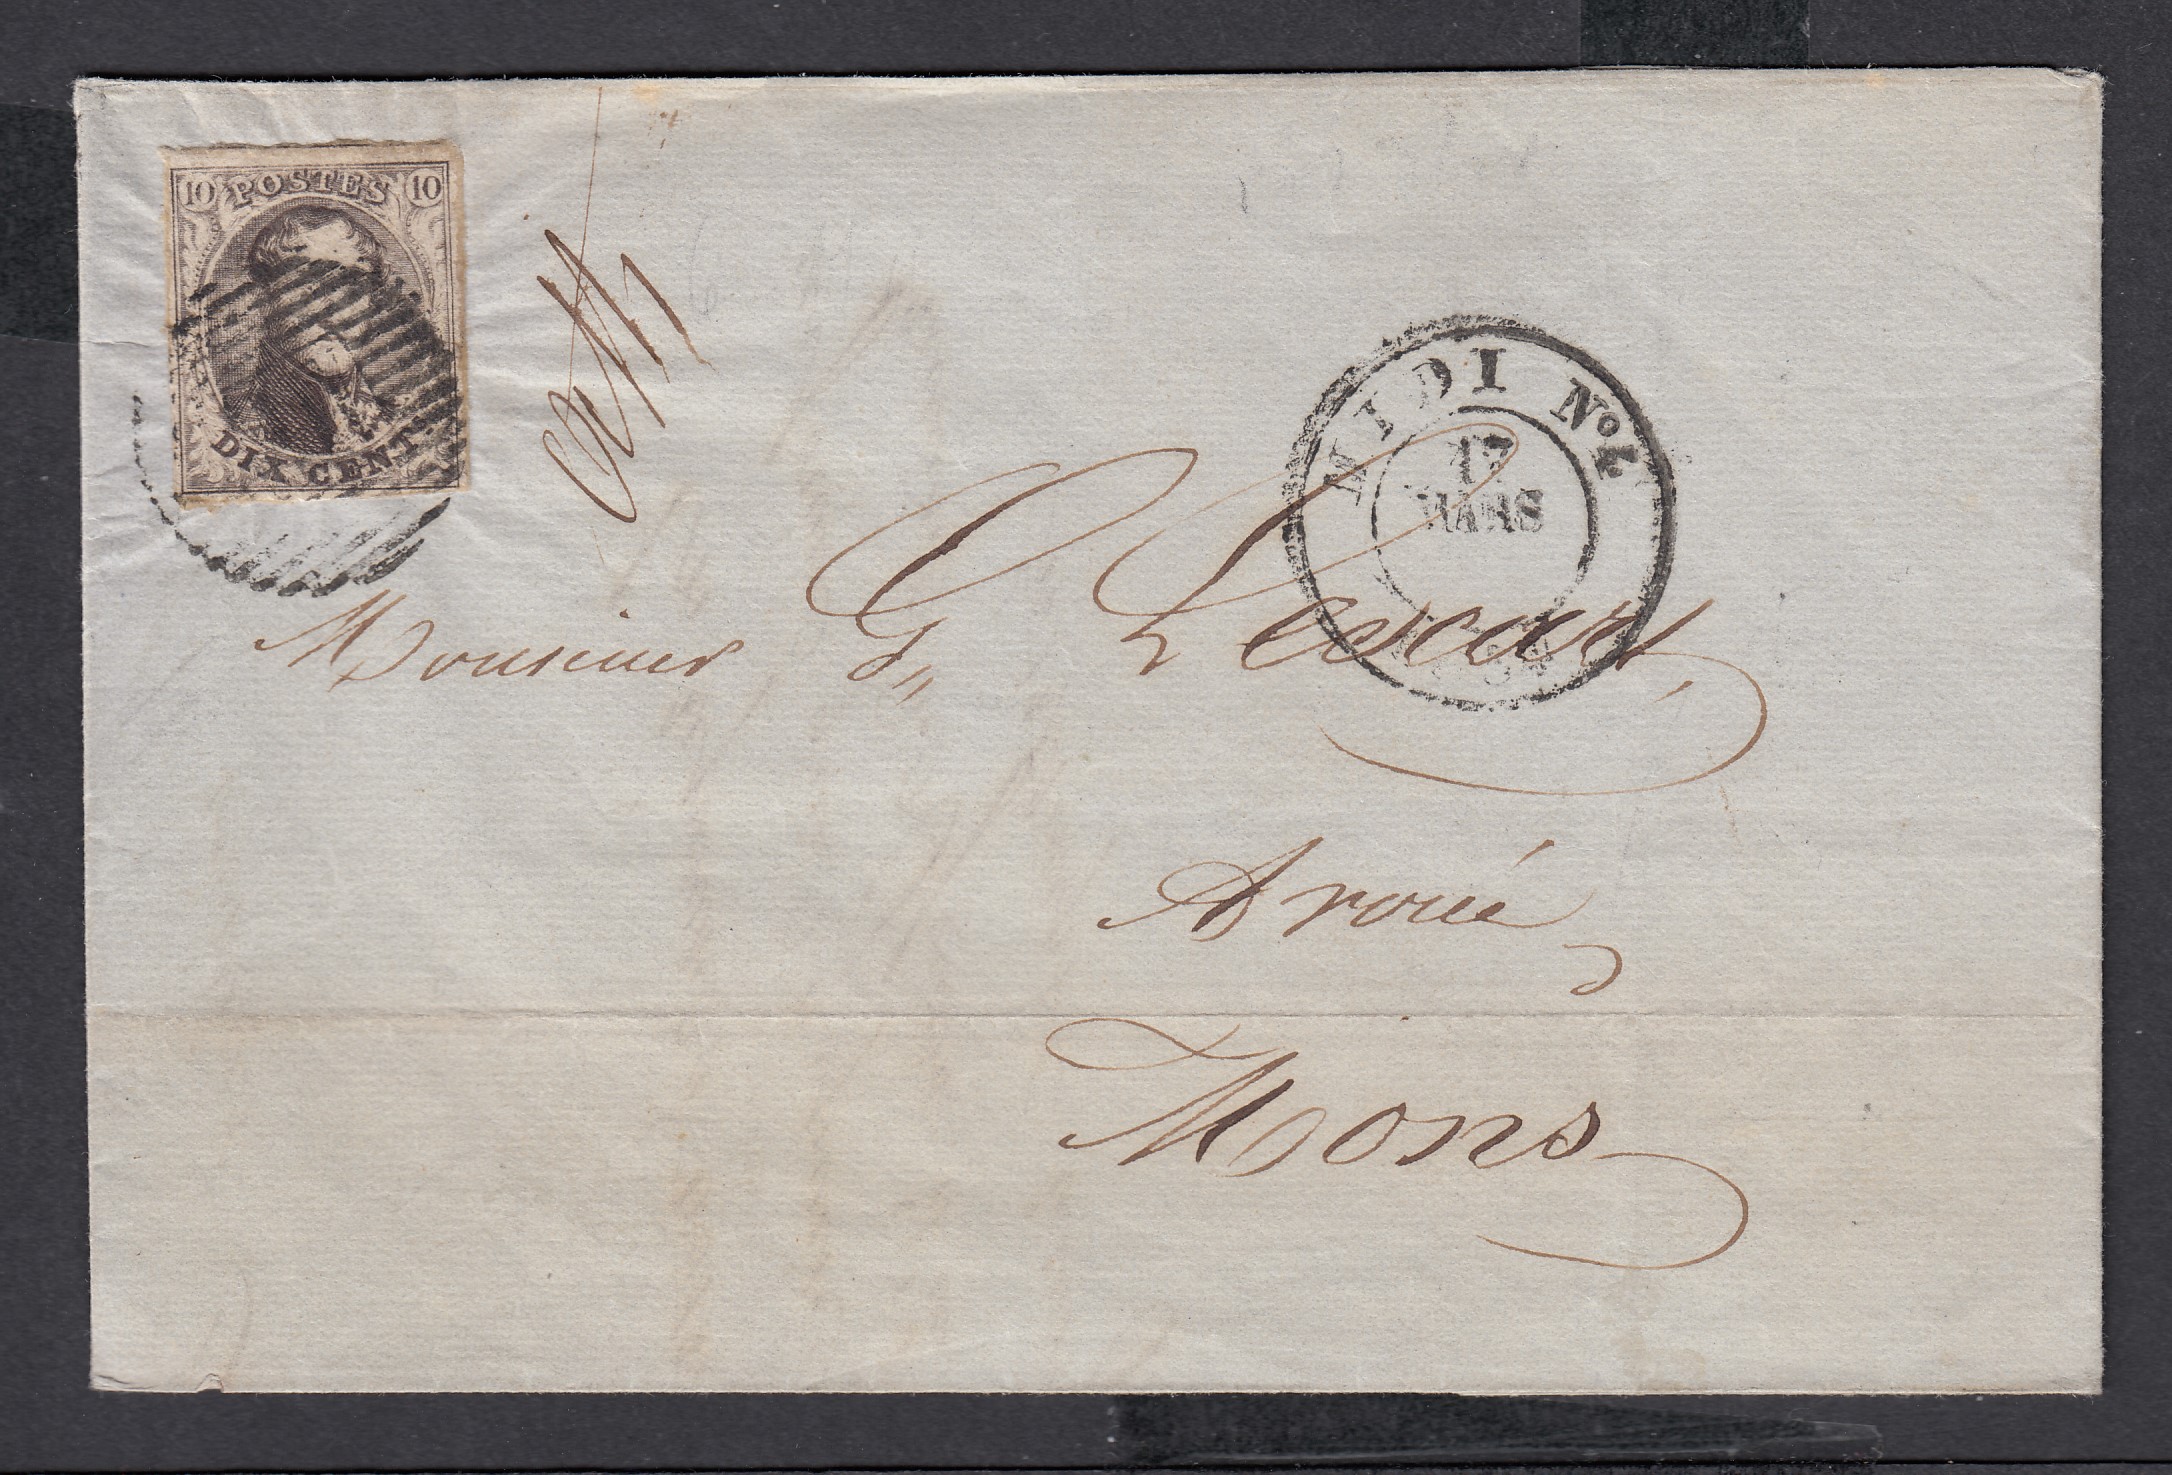 10 POSTES 10
DIX CENT
MIDI No
17
MARS
Monsieur G Lescart,
Avoué
Mons